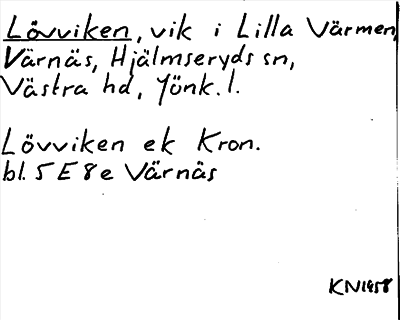 Lövviken, vik i Lilla Värmen,
Värnäs, Hjälmseryds sn,
Västra hd, Jönk. l.
Lövviken ek Kron.
bl. 5 E 8 e Värnäs
KN1958